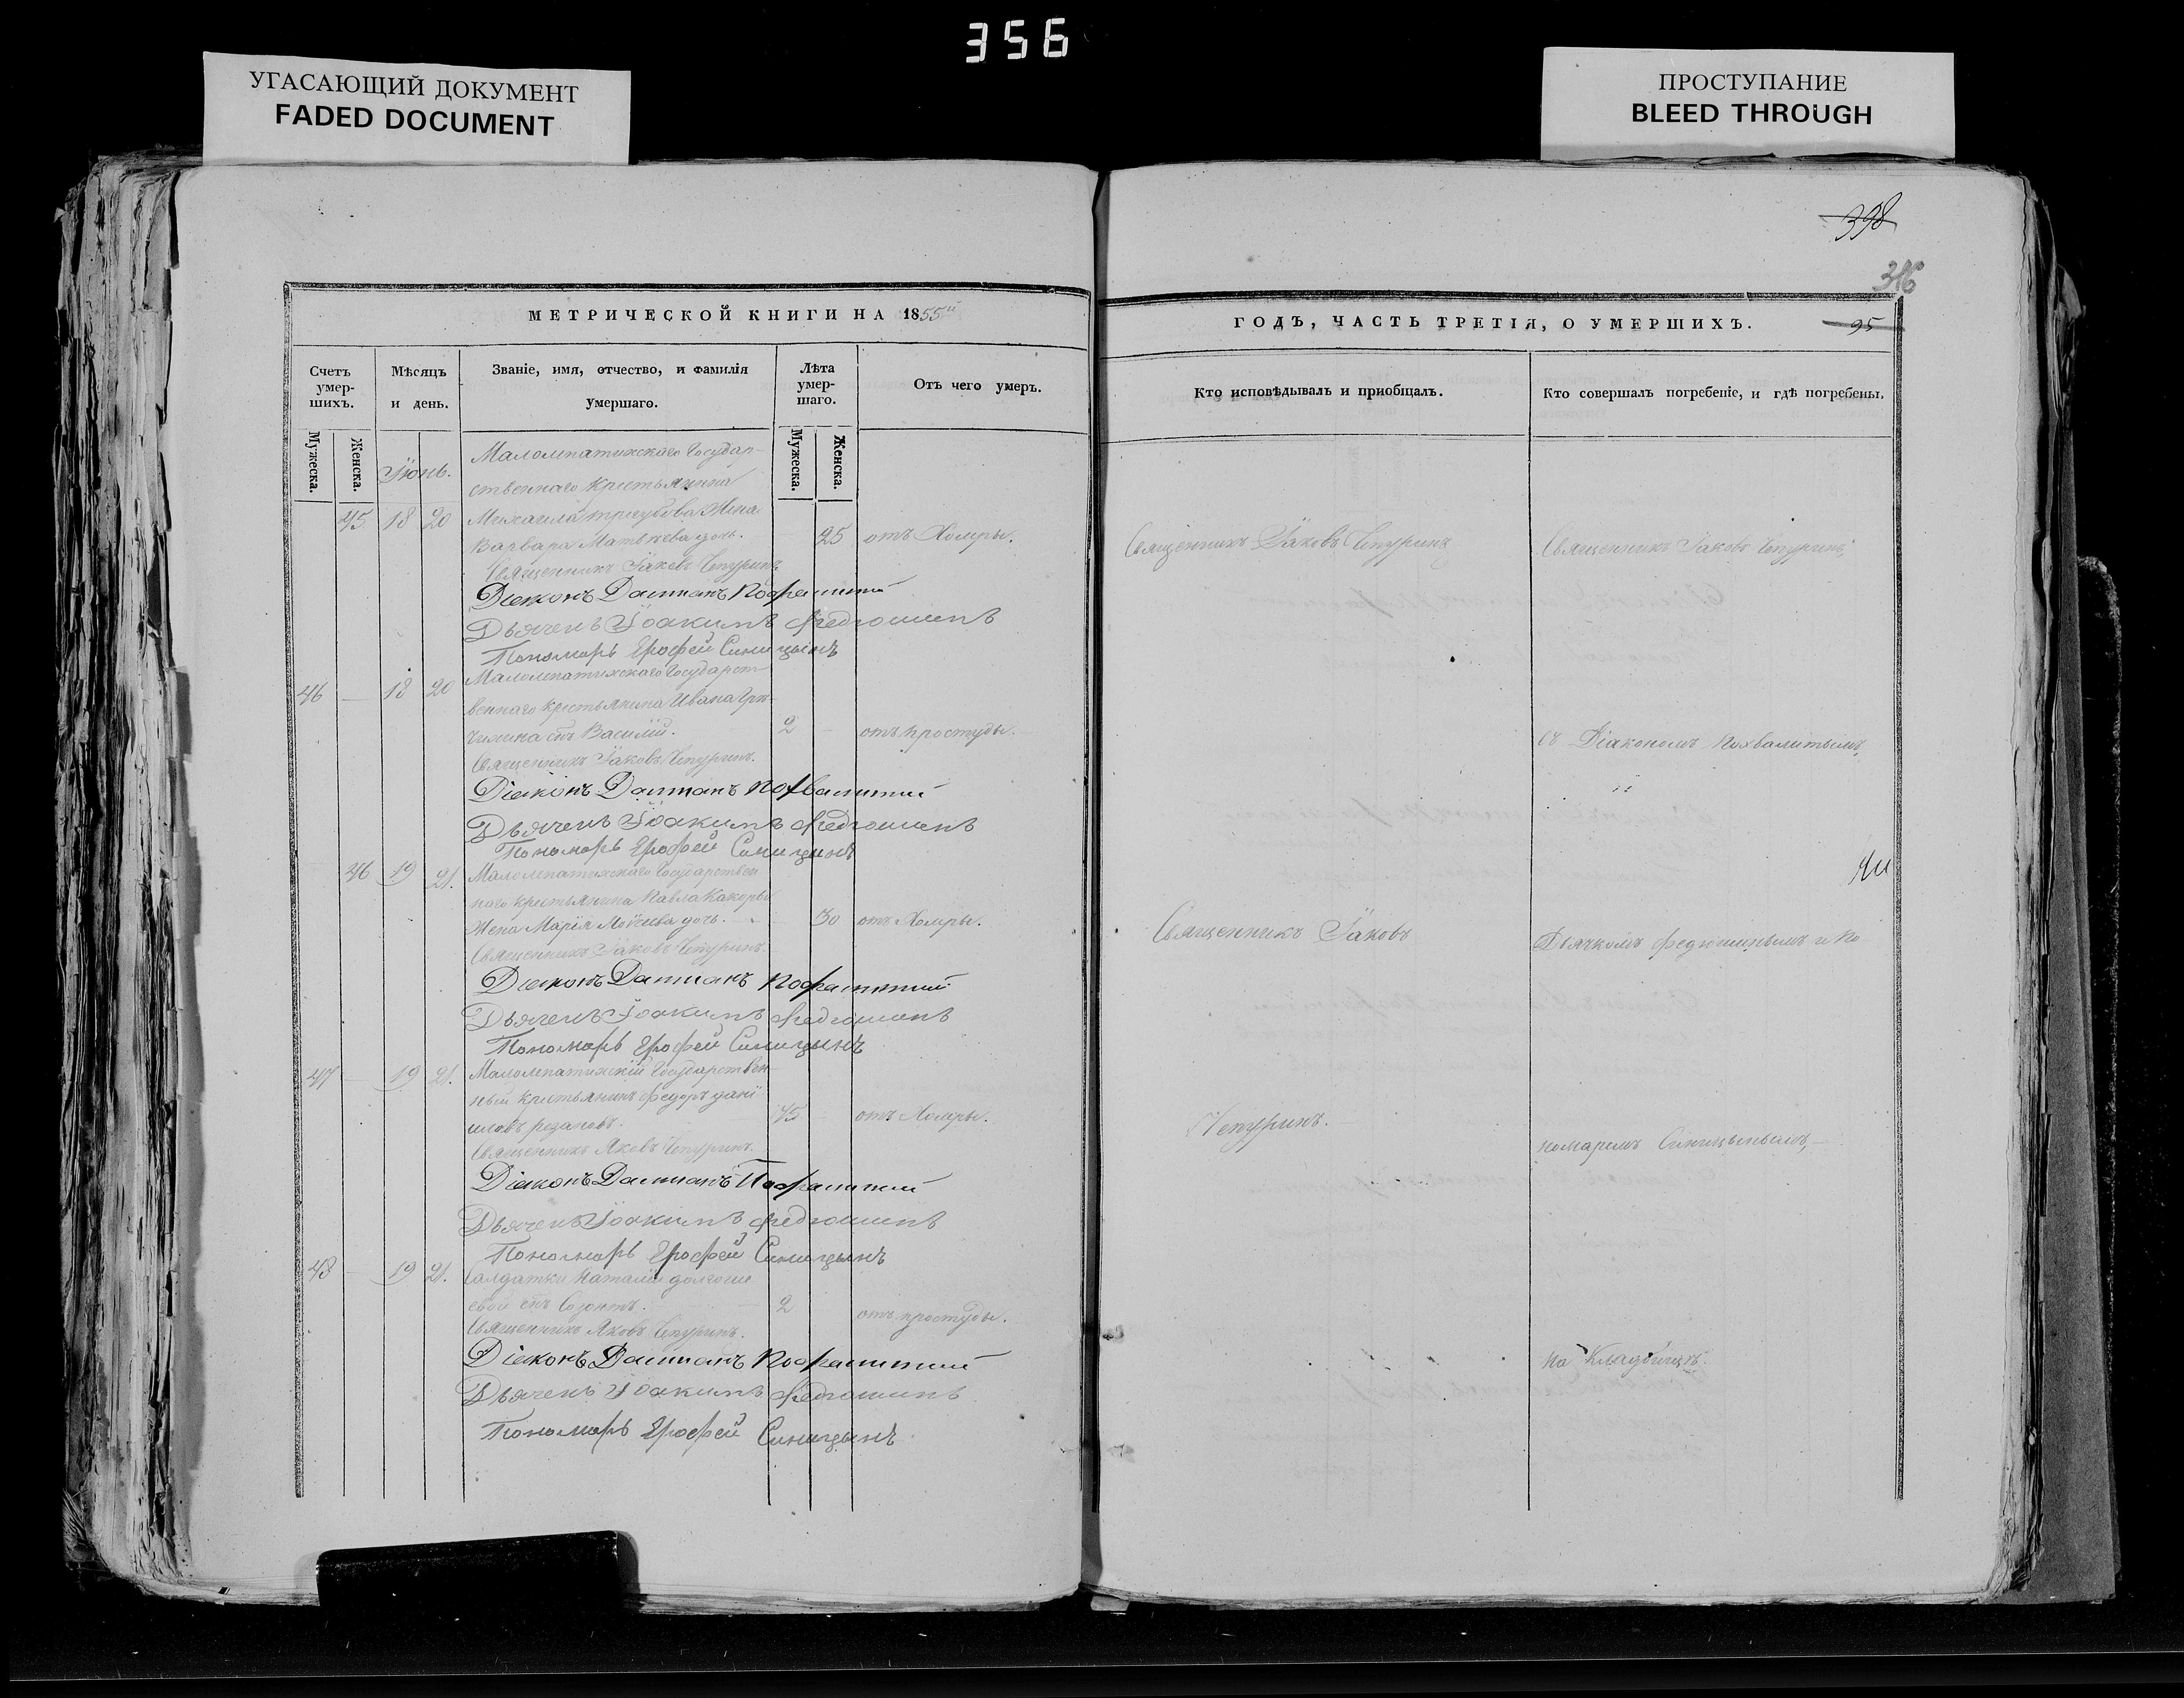 356
УГАСАЮЩИЙ ДОКУМЕНТ
FADED DOCUMENT
ПРОСТУПАНИЕ
BLEED THROUGH
398
316
МЕТРИЧЕСКОЙ КНИГИ НА 1855й
Счетъ умер-шихъ.
Мужеска.
Женска.
Мѣсяцъ и день.
Званіе, имя, отчество, и фамилія умершаго.
Лѣта умер-шаго.
Мужеска.
Женска.
Отъ чего умеръ.
Іюнь.
Маломпатихскаго Государ-
ственнаго крестьянина
45 18 20 Михаила Жена
Варвара Матвѣева дочь. 25 отъ Холеры.
Священникъ Іаковъ Чепуринъ
Діаконъ Даміанъ Похвалитій
Дьячекъ Іоакимъ Федюшинъ
Пономарь Ерофей Синицынъ
46 — 18 20 Государст-
веннаго крестьянина Ивана
сынъ Василій. 2 — отъ простуды.
Священникъ Іаковъ Чепуринъ.
Діаконъ Даміанъ Похвалитій
Дьячекъ Іоакимъ Федюшинъ
Пономарь Ерофей Синицынъ
46 19 21. Государствен
наго крестьянина Павла
Жена Марія Моѵсеева дочь. 30 отъ Холеры.
Священникъ Іаковъ Чепуринъ
Діаконъ Даміанъ Похвалитій
Дьячекъ Іоакимъ Федюшинъ
Пономарь Ерофей Синицынъ
47 — 19 21. Государствен
ный крестьянинъ Федоръ Дані
иловъ 45 — отъ Холеры.
Священникъ Яковъ Чепуринъ.
Діаконъ Даміанъ Похвалитій
Дьячекъ Іоакимъ Федюшинъ
Пономарь Ерофей Синицынъ
48 — 19 21. Салдатки Наталіи
сынъ Созонтъ. 2 отъ простуды.
Священникъ Яковъ Чепуринъ.
Діаконъ Даміанъ Похвалитій
Дьячекъ Іоакимъ Федюшинъ
Пономарь Ерофей Синицынъ
ГОДЪ, ЧАСТЬ ТРЕТІЯ, О УМЕРШИХЪ.
95
Кто исповѣдывалъ и пріобщалъ.
Кто совершалъ погребеніе, и гдѣ погребены.
Священникъ Іаковъ Чепуринъ
Священникъ Іаковъ Чепуринъ,
съ Діакономъ Похвалитымъ,
Священникъ Іаковъ
Дьячкомъ Федюшинымъ и По-
Чепуринъ.
номаремъ Синицынымъ,
на Кладбищѣ.